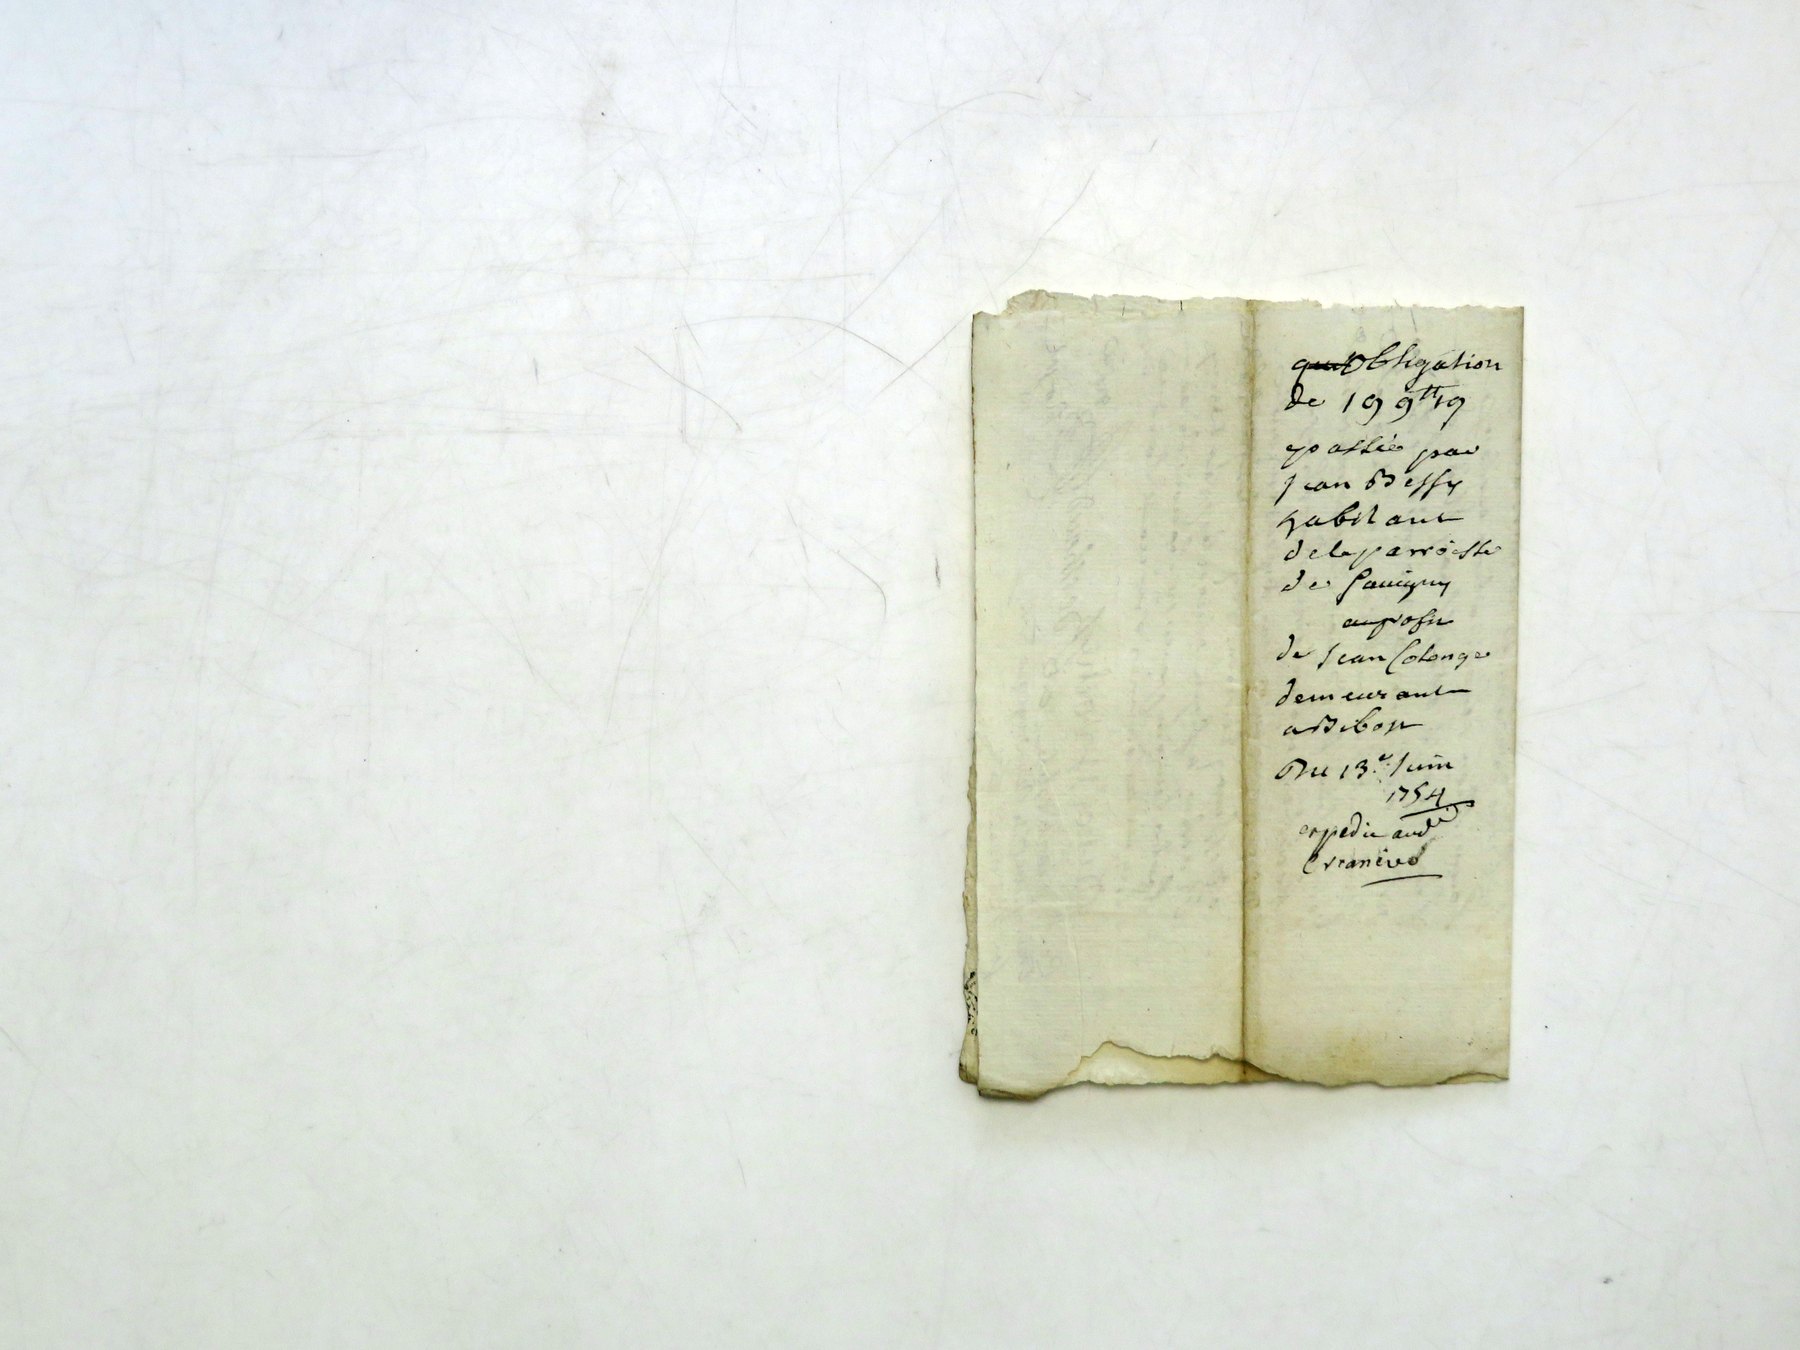 Obligation
de 199tt 19
passée par
Jean Bessy
habitant
dela parroisse
de Savigny
au profit
de Jean Colonge
demeurant
a Bibost
Du 13.e Juin
1754
expedié aud
Creancier